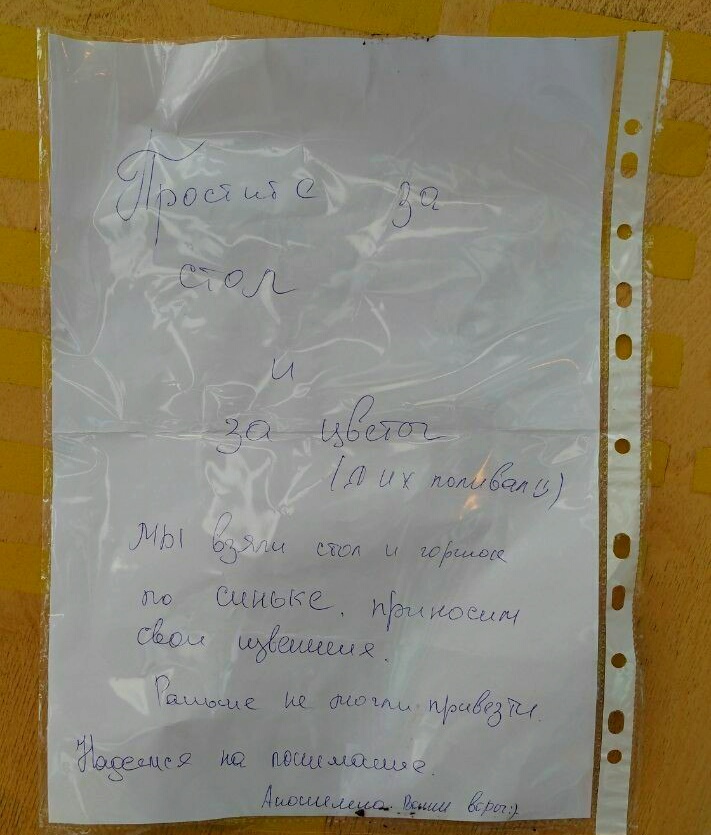 Простите за
стол
и
за цветог
(Я их поливал☺)
Мы взяли стол и горшок
по синьке. приносим
свои извенния.
Раньше не могли привезти.
Надеемся на понимание.
Ваши воры:)